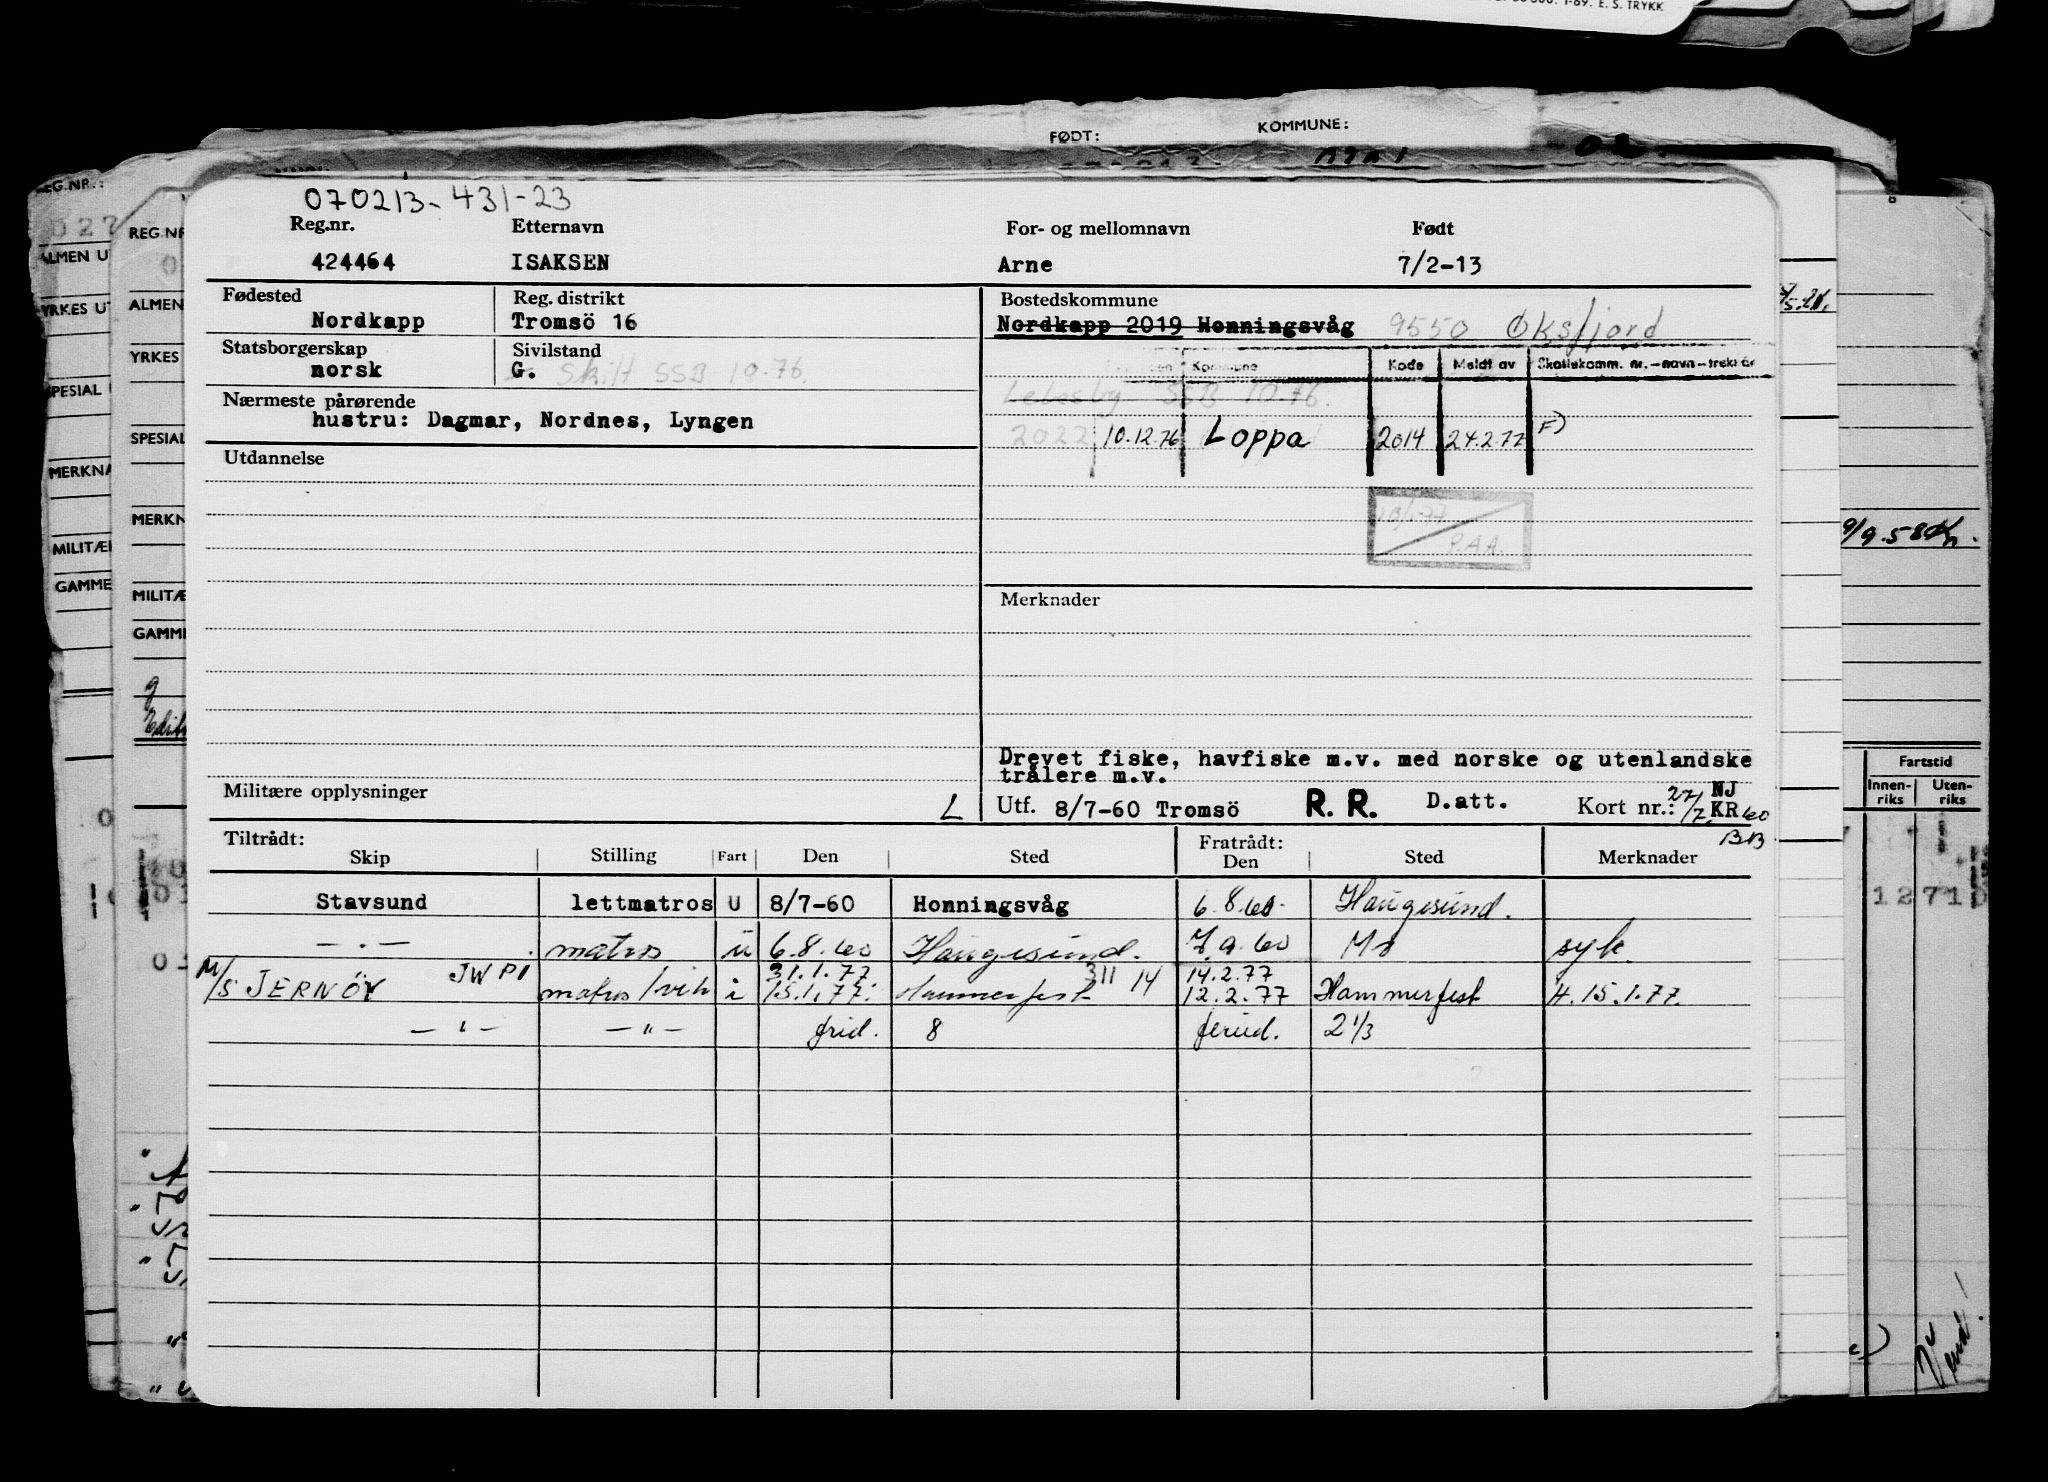 E. S. TRYKK
FØDT: KOMMUNE:
070213-431-23
Reg.nr. Etternavn For- og mellomnavn Født
424464 ISAKSEN Arne 7/2-13
Fødested Reg. distrikt Bostedskommune
Nordkapp Tromsö 16 Nordkapp 2019 Honningsvåg 9550 Øksfjord
Statsborgerskap Sivilstand Kommune Kode Meldt av Skattekomm. nr.-navn-trekt år
norsk G. Skilt SSB 10.76. Lebesby SSB 10.76.
Nærmeste pårørende
hustru: Dagmar, Nordnes, Lyngen 2022 10.12.76 Loppa 2014 24.2.77 F)
Utdannelse
P.A.A.
Merknader
Drevet fiske, havfiske m.v. med norske og utenlandske
trålere m.v.
Militære opplysninger L Utf. 8/7-60 Tromsö R. R. D.att. Kort nr.: 27/7 NJ KR 60
BB
Tiltrådt: Fratrådt:
Skip Stilling Fart Den Sted Den Sted Merknader
Stavsund lettmatros U 8/7-60 Honningsvåg 6.8.60 Haugesund.
— . — matros u 6.8.60 Haugesund. 7.9.60 syk.
31.1.77 311 14 14.2.77
M/S JERNÖY JWPI matros/vik i 15.1.77. Hammerfest 12.2.77 Hammerfest H.15.1.77.
— " — — " — frid. 8 feried. 2 1/3
REG.NR.:
ALMEN U
YRKES UT
SPESIAL
MERKNA
MILITÆ
GAMME
REG.NR
ALMEN
YRKES
SPESIAL
MERKN
MILITÆ
GAMME
9/9.58
Fartstid
Innen-riks Uten-riks
1271